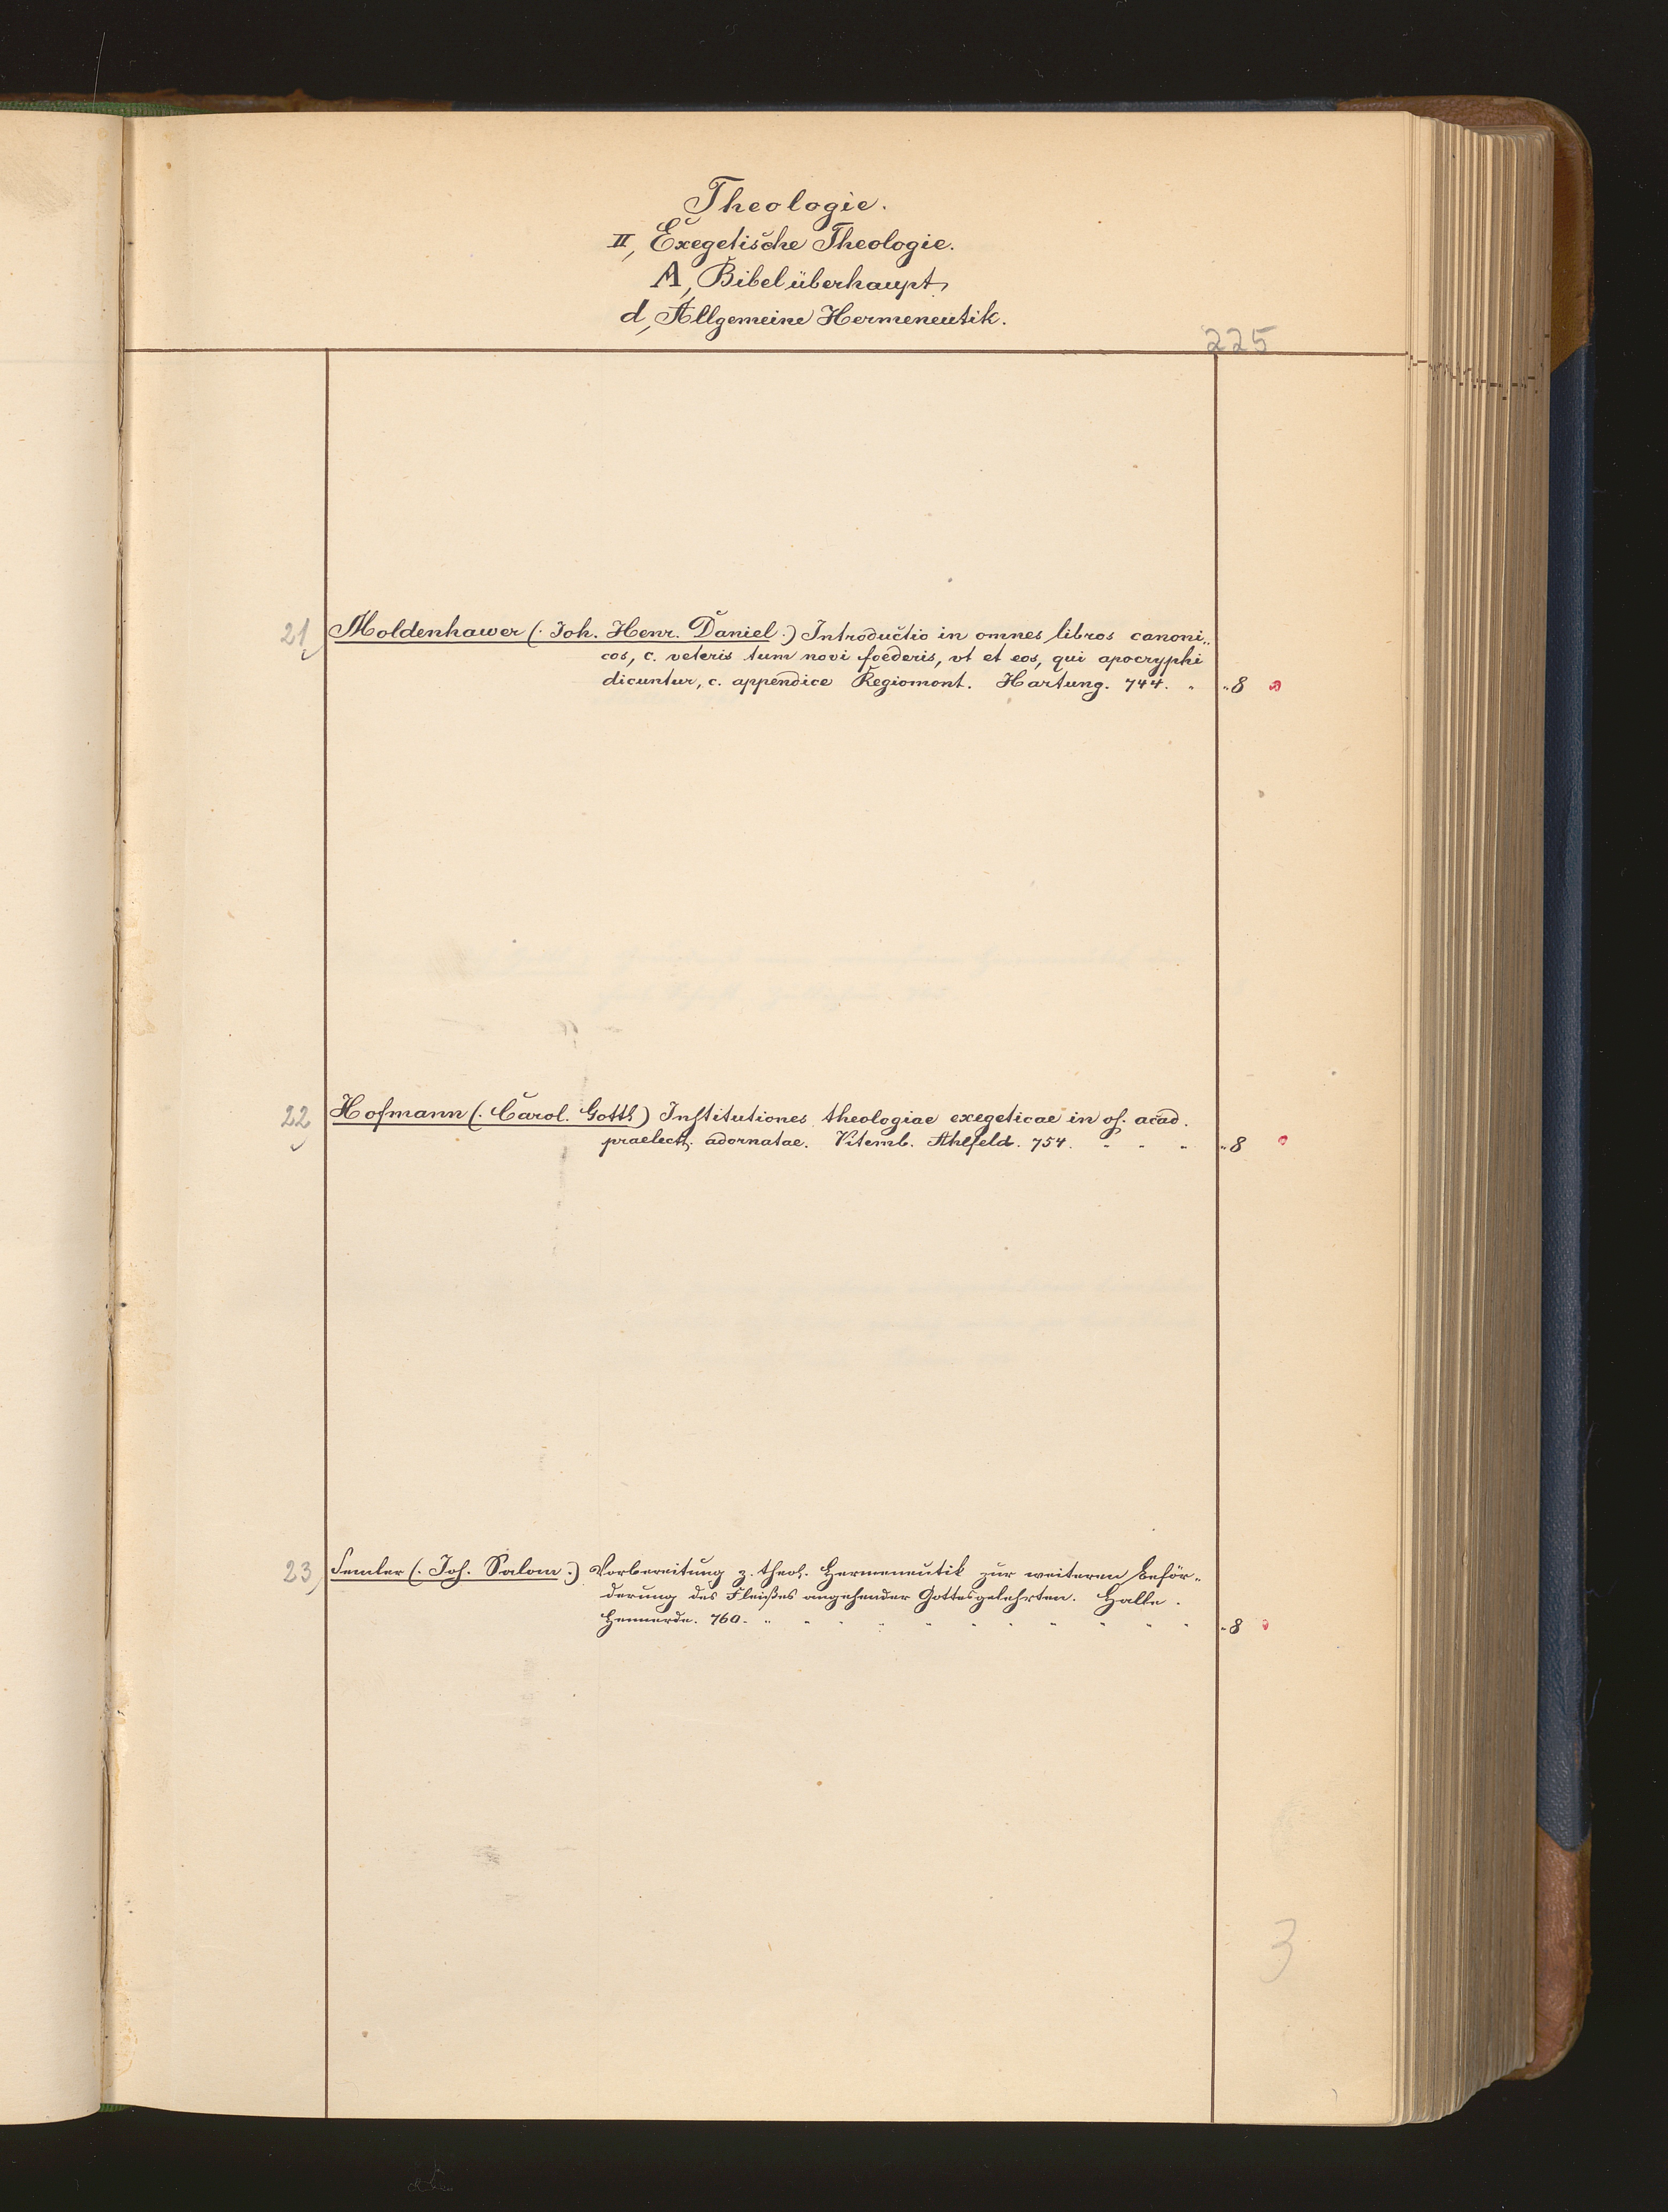 Theologie.
II, Exegetische Theologie.
A, Bibel überhaupt
d, Allgemeine Hermeneutik.
225
21) Moldenhawer (. Joh. Henr. Daniel .) Introductio in omnes libros canoni„
cos, c. veteris tum novi foederis, vt et eos, qui apocryphi
dicuntur, c. appendice Regiomont. Hartung. 744. „ „ 8
22 Hofmann (. Carol. Gottl) Institutiones theologiae exegeticae in acad.
praelectt. adornatae. Vitemb. Ahlfeld. 754. „ „ „ „ 8
23) Semler (. Joh. Salom .) Vorbereitung z. theol. Hermeneutik zur weiteren Beför„
derung des Fleißes angehender Gottesgelehrten. Halle.
Hemmerde. 760. „ „ „ „ „ „ „ „ „ „ „ „ 8
3